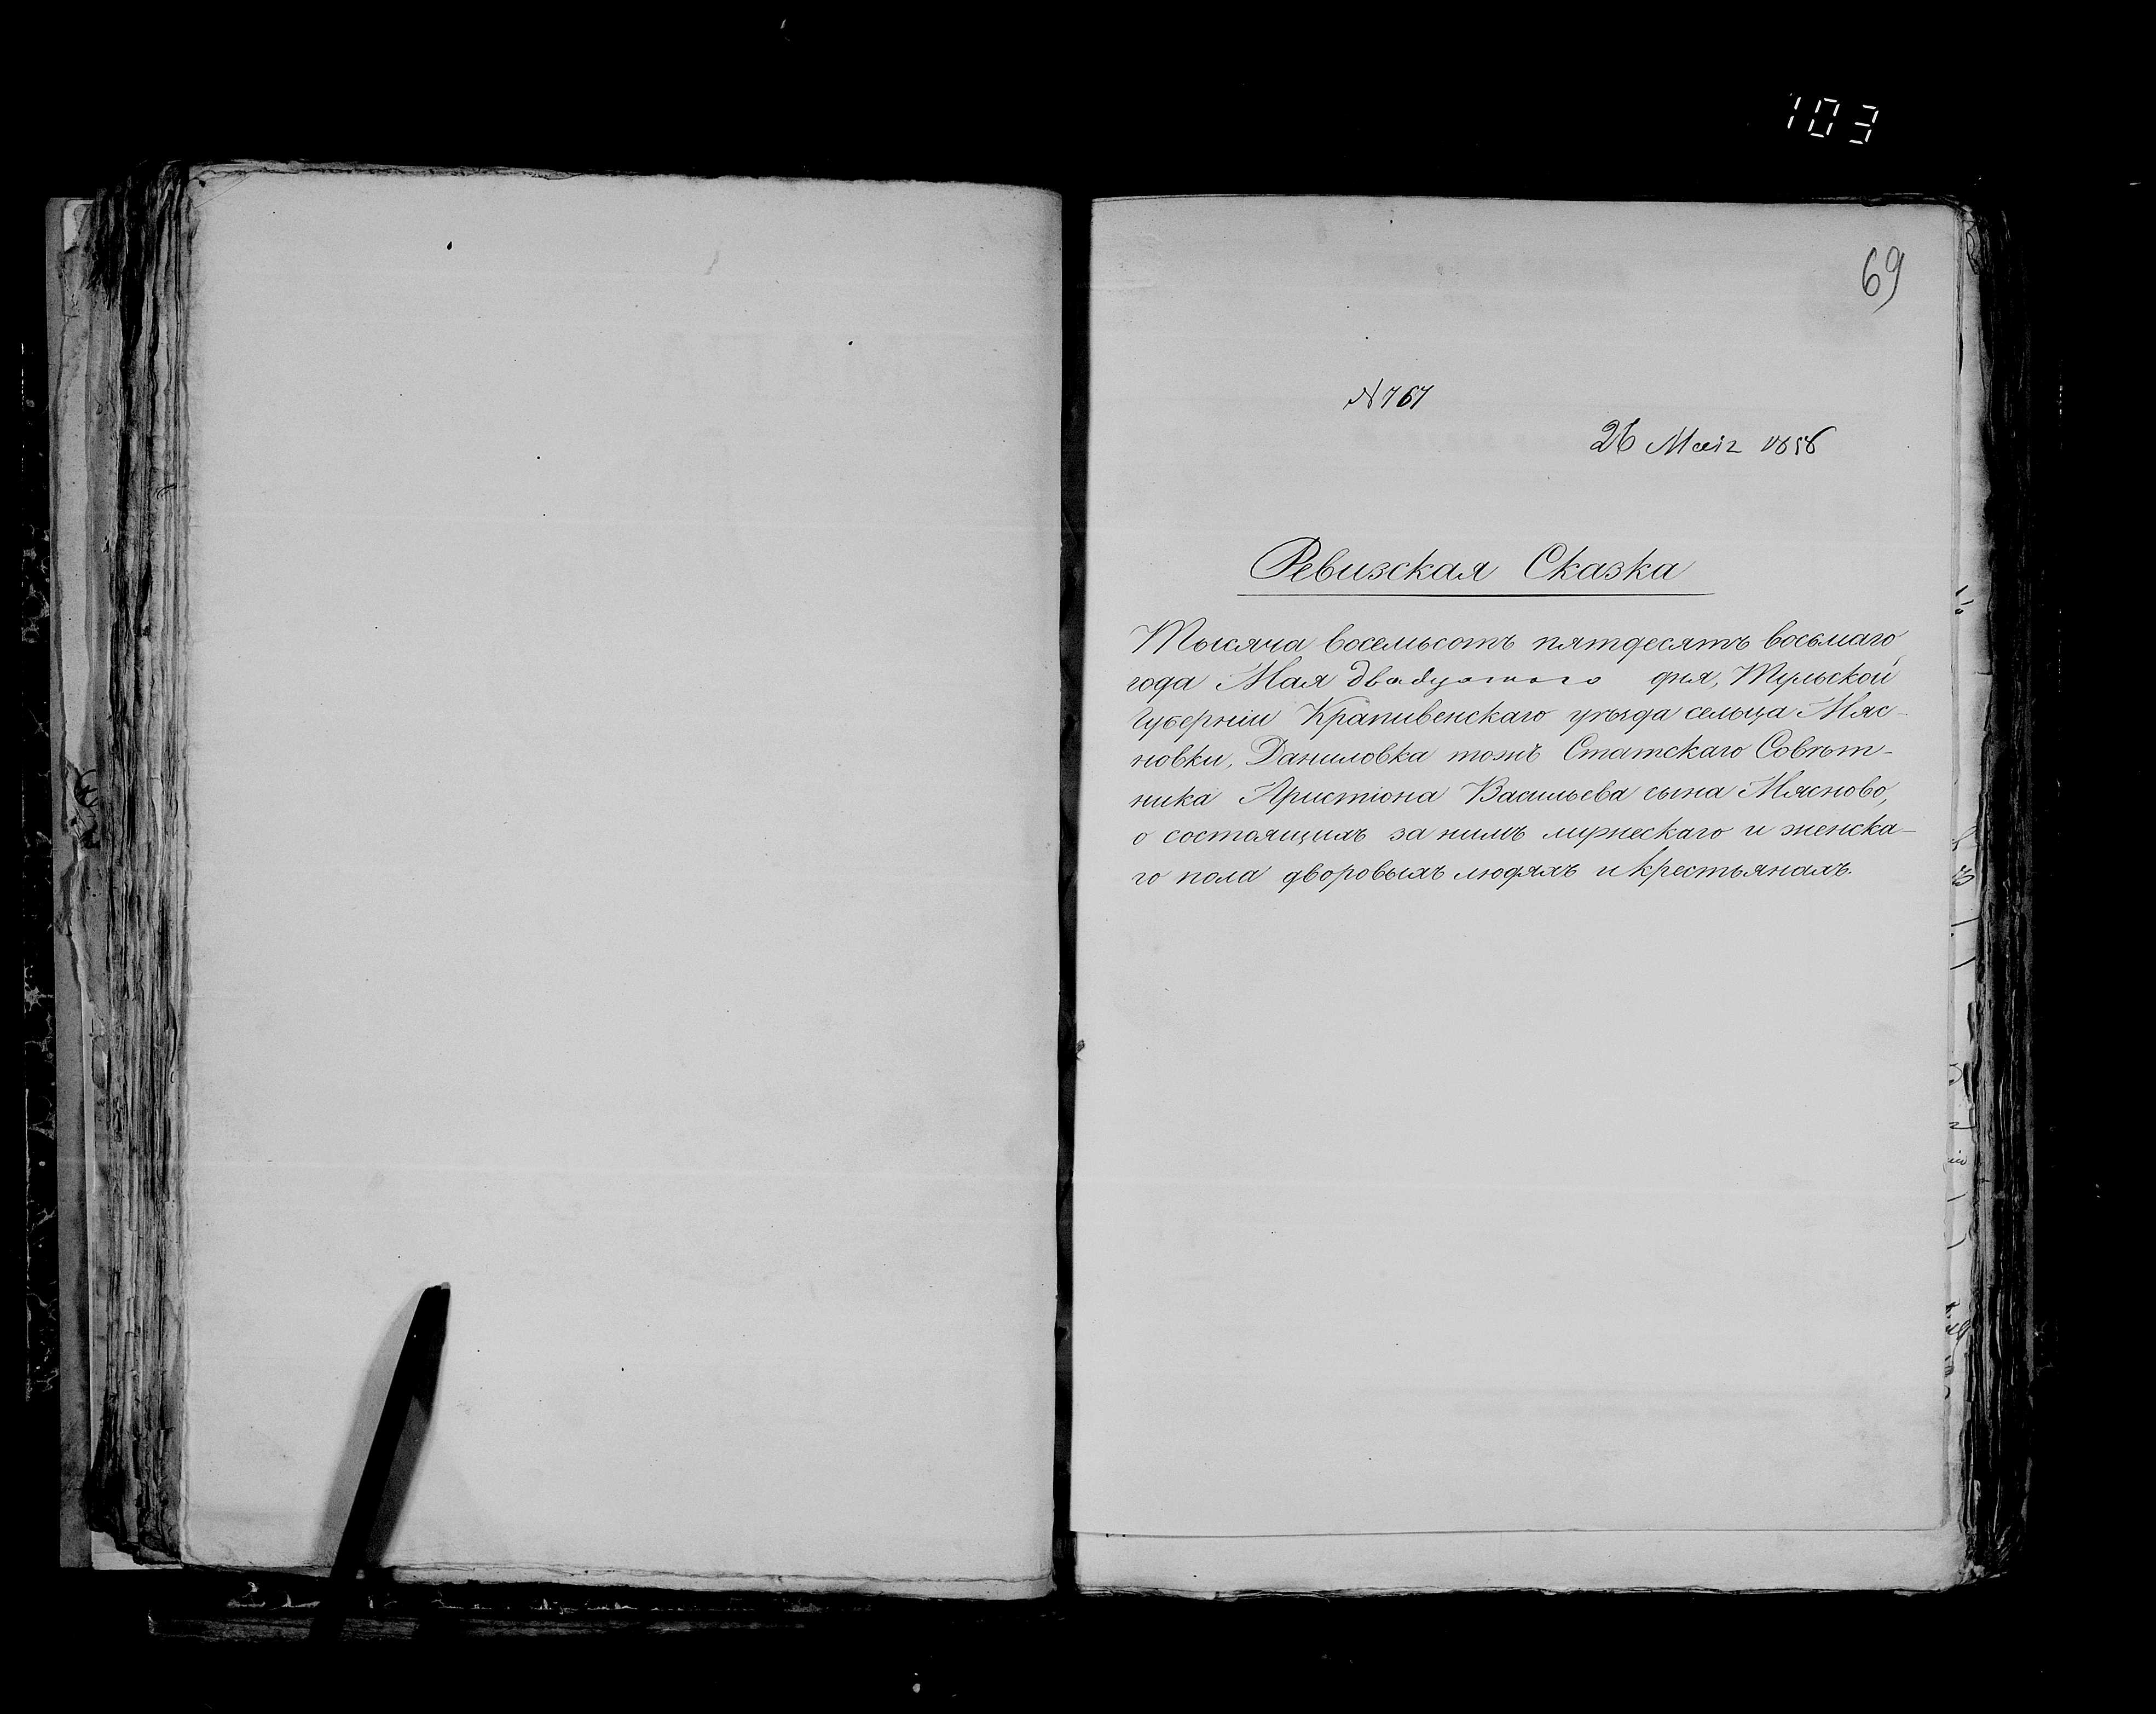 103
69
№ 767
26 Мая 1858
Ревизская Сказка
Тысяча восемьсотъ пятдесятъ восьмаго
года Мая двадцатаго дня, Тульской
Губерніи Крапивенскаго уѣзда сельца Мяс-
новки, Даниловка тожъ Статскаго Совѣт-
ника Аристіона Васильева сына Мясново,
о состоящихъ за нимъ мужескаго и женска-
го пола дворовыхъ людяхъ и крестьянахъ.